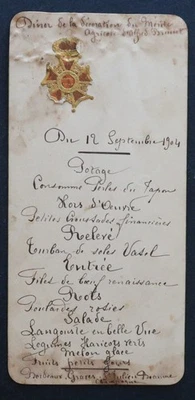 Diner de la Décoration du Mérite
Agricole d'Alfred
Du 12 Septembre 1904
Potage
Consommé Perles du Japon
Hors d'Œuvre
Petites Croustades financières
Relevé
Timbale de soles Vatel
Entrée
Filet de bœuf renaissance
Rots
Poulardes roties
Salade
Langouste en belle Vue
Légumes Haricots verts
Melon glacé
Fruits petits fours
Bordeaux Graves Beaune